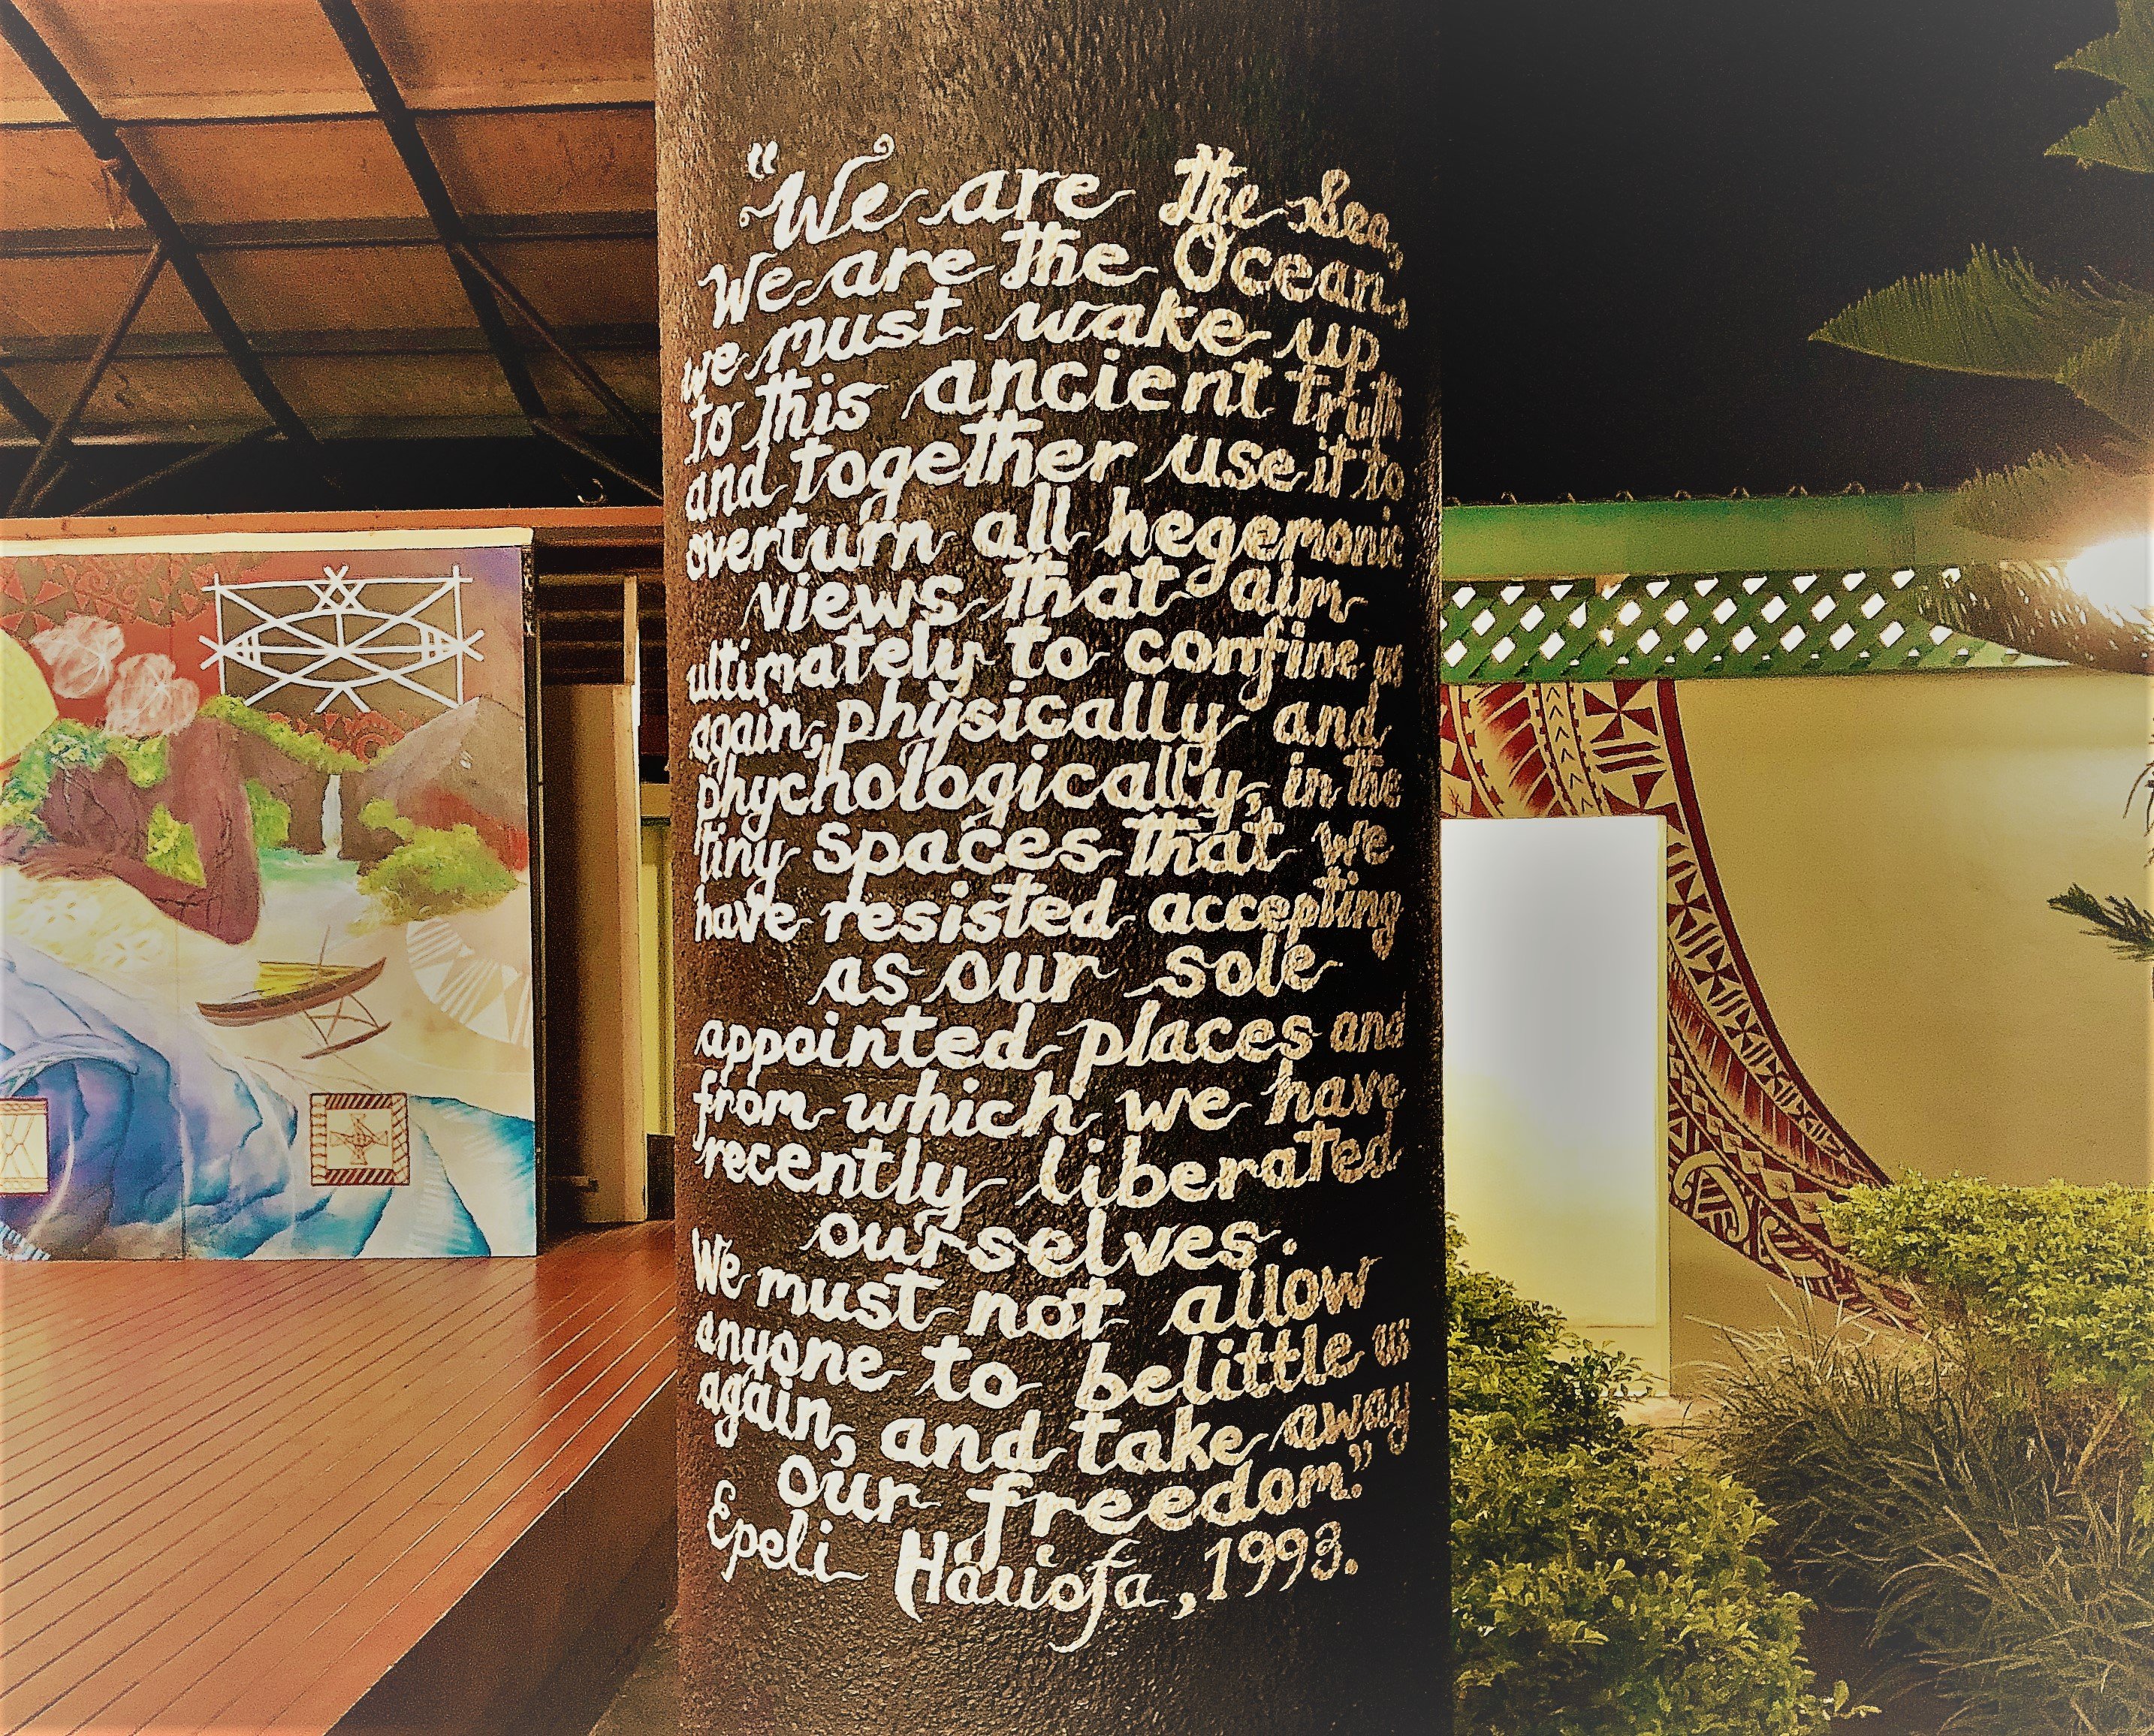 "We are the Sea,
We are the Ocean,
we must wake up
to this ancient truth
and together use it to
overturn all hegemonic
views that aim
ultimately to confine us
again, physically and
phychologically, in the
tiny spaces that we
have resisted accepting
as our sole
appointed places and
from which we have
recently liberated
ourselves.
We must not allow
anyone to belittle us
again, and take away
our freedom."
Epeli Hauʻofa, 1993.